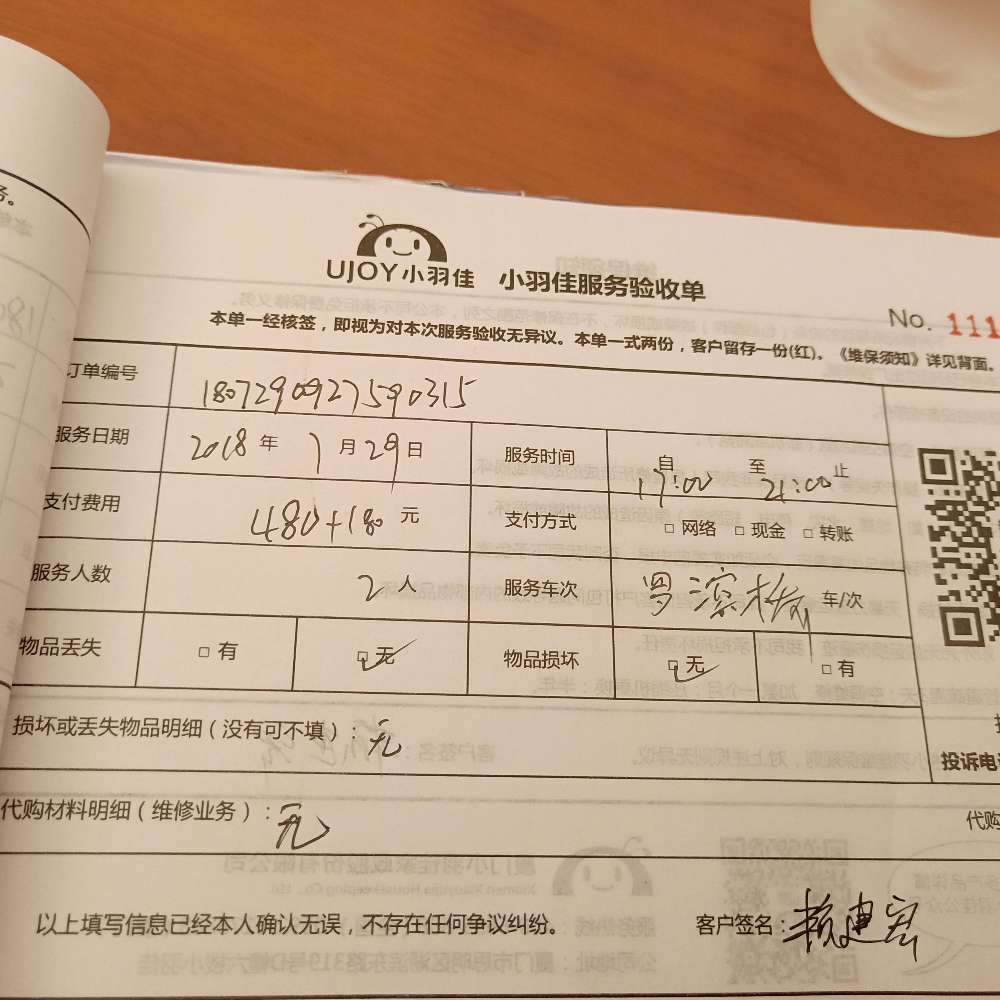 务。
UJOY小羽佳 小羽佳服务验收单
No. 111
本单一经核签，即视为对本次服务验收无异议。本单一式两份，客户留存一份(红)。《维保须知》详见背面。
订单编号 1807290927590315
服务日期 2018年 7月29日 服务时间 自 17:00 至 21:00 止
支付费用 480+180 元 支付方式 □ 网络 □ 现金 □ 转账
服务人数 2人 服务车次 车/次
物品丢失 □ 有 □ 无 物品损坏 □ 无 □ 有
损坏或丢失物品明细（没有可不填）：无
投诉电
代购材料明细（维修业务）：无
代购
以上填写信息已经本人确认无误，不存在任何争议纠纷。 客户签名：赖建宏